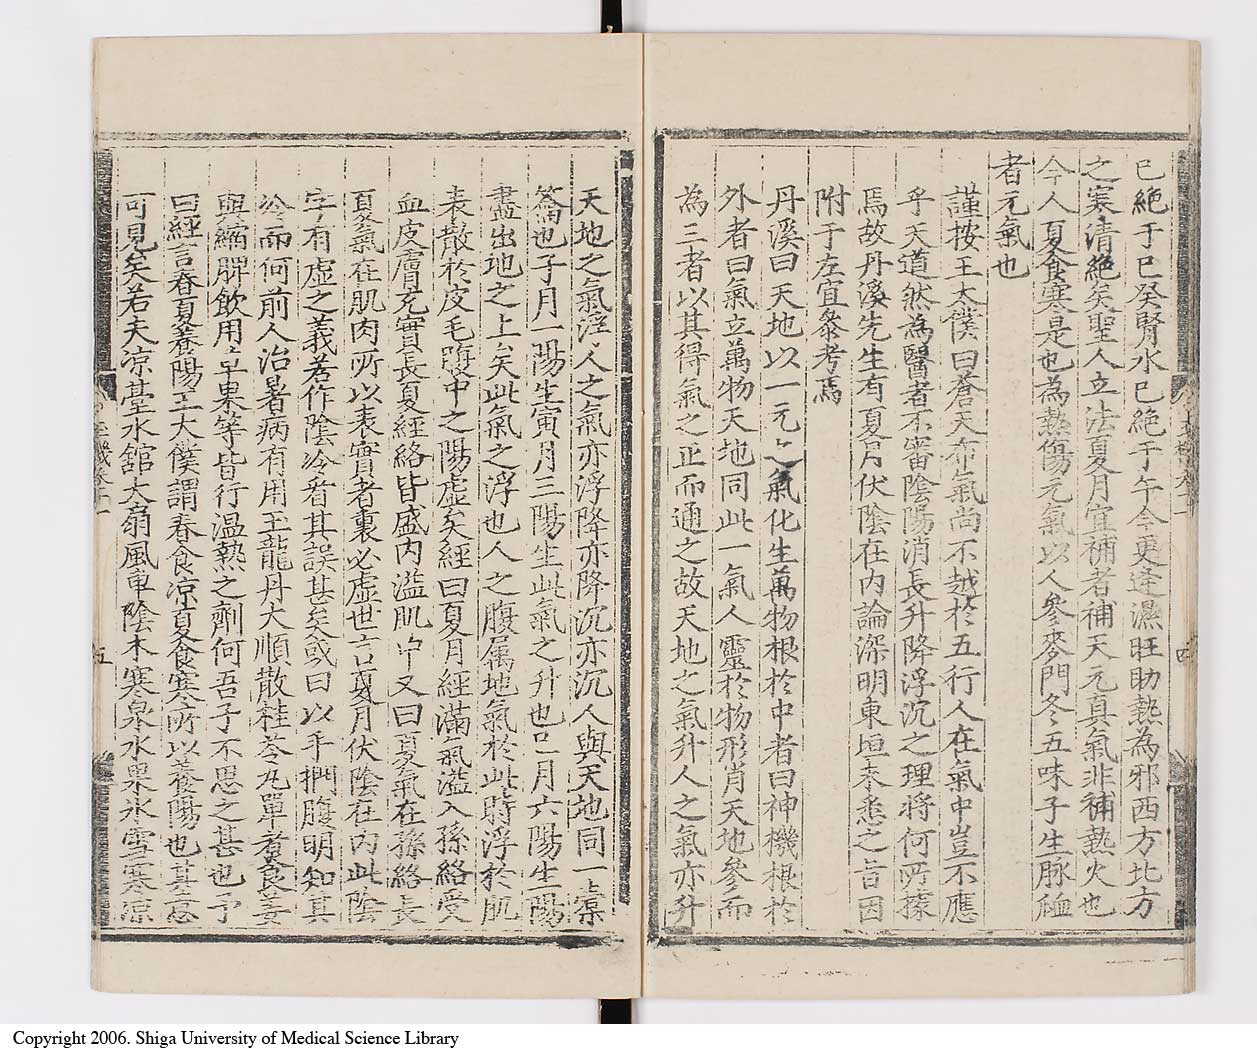 巳絶于巳癸腎水巳絶于午今更逢濕旺助熱為邪西方北方
之寒清絶矣聖人立法夏月宜補者補天元真氣非補熱火也
今人夏食寒是也為熱傷元氣以人參麥門冬五味子生脉
者元氣也
謹按王太僕曰蒼天布氣尚不越於五行人在氣中豈不應
乎天道然為醫者不審陰陽消長升降浮沉之理將何所據
焉故丹溪先生有夏月伏陰在内論深明東垣未悉之旨因
附于左宜叅考焉
丹溪曰天地以一元之氣化生萬物根於中者曰神機根於
外者曰氣立萬物天地同此一氣人靈於物形肖天地參而
為三者以其得氣之正而通之故天地之氣升人之氣亦升
天地之氣浮人之氣亦浮降亦降沉亦沉人與天地同一橐
籥也子月一陽生寅月三陽生此氣之升也巳月六陽生陽
盡出地之上矣此氣之浮也人之腹属地氣於此時浮於肌
表散於皮毛腹中之陽虚矣經曰夏月經滿氣溢入孫絡受
血皮膚充實長夏經絡皆盛内溢肌中又曰夏氣在孫絡長
夏氣在肌肉所以表實者裏必虚世言夏月伏陰在内此陰
字有虚之義若作陰冷看其誤甚矣或曰以手捫腹明知其
冷而何前人治暑病有用玉龍丹大順散桂苓丸單煮良姜
與縮脾飲用草果等皆行温熱之劑何吾子不思之甚也予
曰經言春夏養陽王大僕謂春食凉夏食寒所以養陽也其意
可見矣若夫凉臺水舘大扇風車陰木寒泉水果氷雪寒凉
五
四
Copyright 2006. Shiga University of Medical Science Library